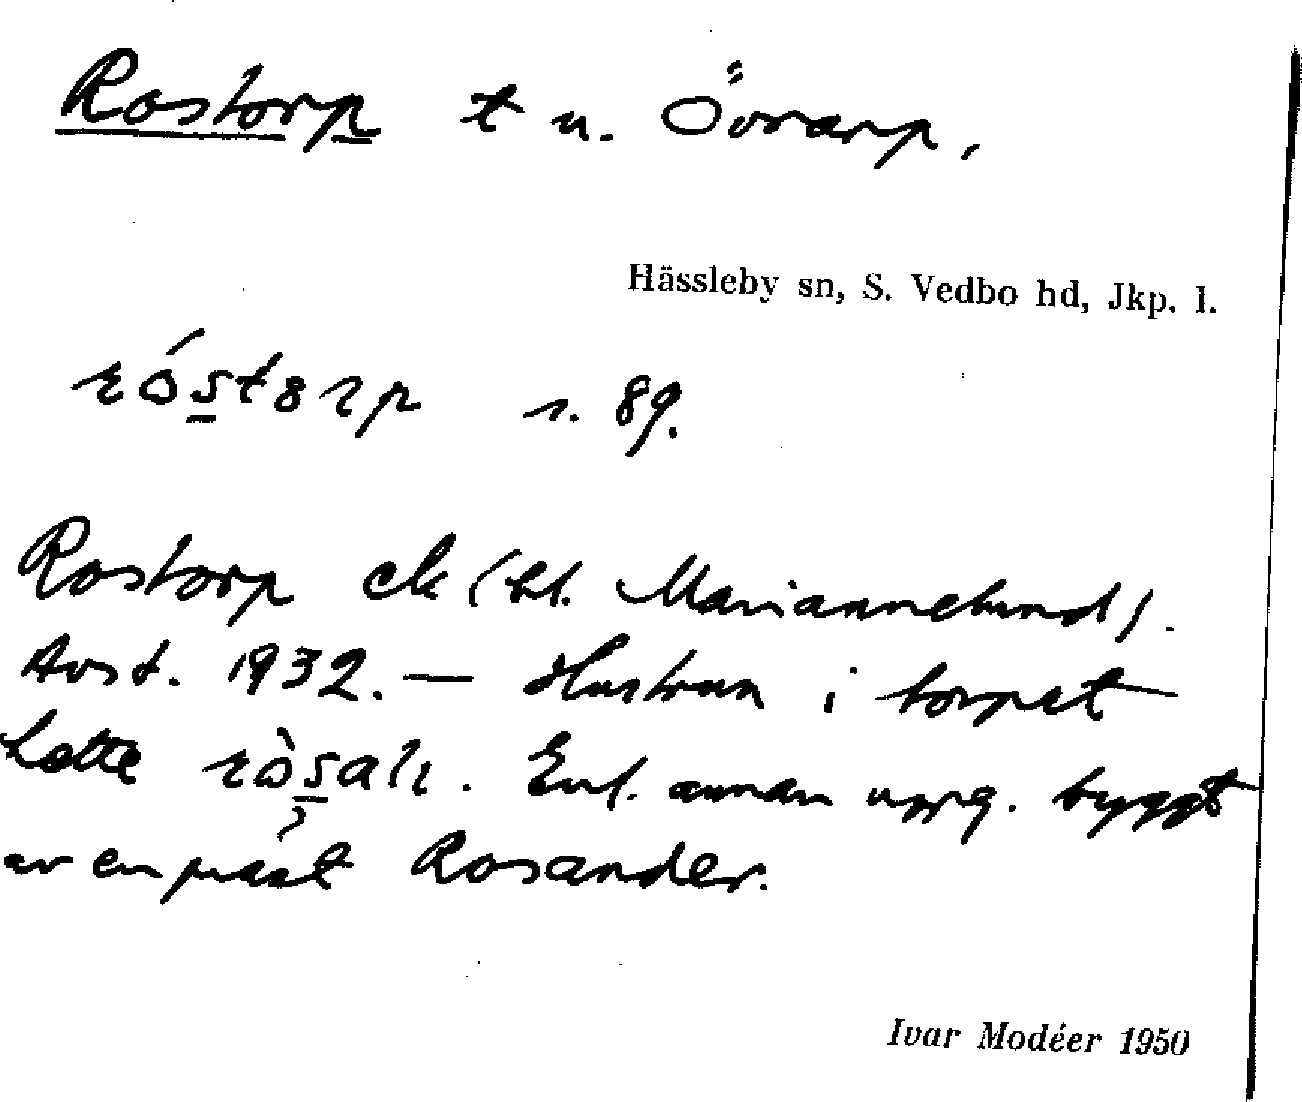 Rostorp t u. Övrarp,
Hässleby sn, S. Vedbo hd, Jkp. l.
s. 89.
Rostorp ek (bl. Mariannelund).
Avst. 1932. — Hustrun i torpet
hette Enl. annan uppg. byggt
av en präst Rosander.
Ivar Modéer 1950